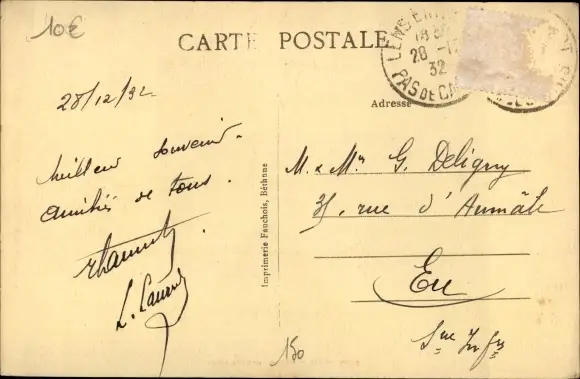 10€
CARTE POSTALE
LENS
18
28 -12
32
PAS DE CA
Adresse
28/12/32
Meilleur souvenir.
Amitiés de tous.
L.
Imprimerie Fauchois, Béthune
M. & Mme G. Deligny
31, rue d'Aumâle
Eu
Sne Infre
150